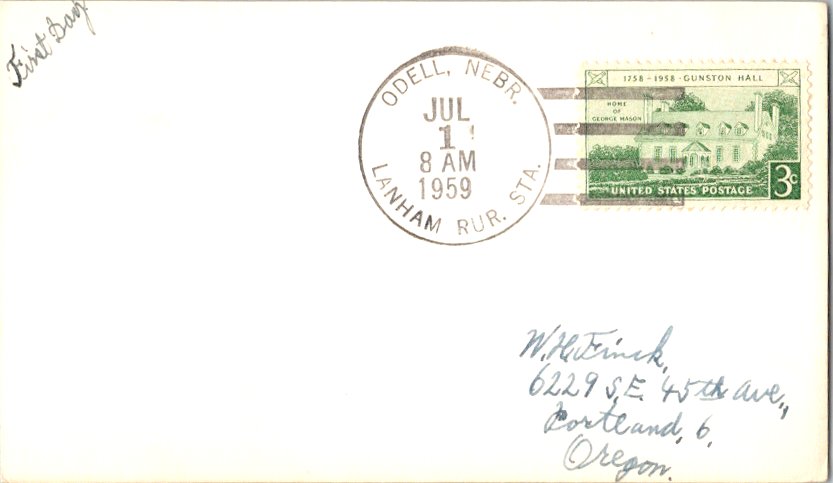 First Day
ODELL, NEBR.
JUL
1
8 AM
1959
LANHAM RUR. STA.
1758-1958·GUNSTON HALL
HOME
OF
GEORGE MASON
UNITED STATES POSTAGE
3c
W.H. Finck,
6229 S.E. 45th Ave.,
Portland, 6,
Oregon.